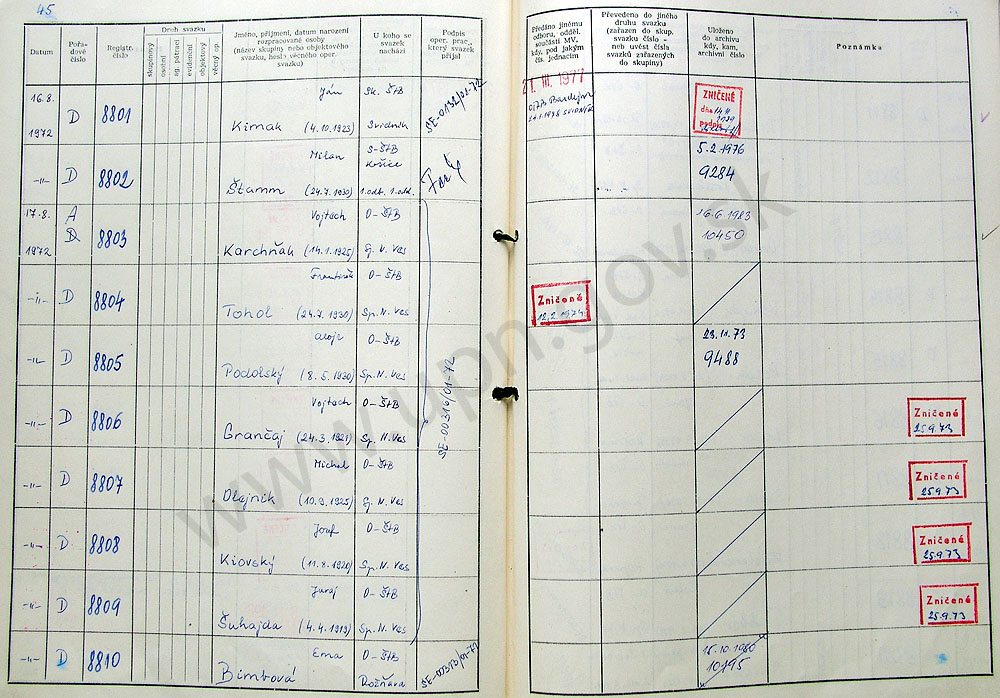 45
Datum
Pořadové číslo
Registr. číslo
Druh svazku
skupinový
osobní
sg. pátrací
evidenční
objektový
věcný op.
Jméno, příjmení, datum narození
rozpracované osoby
(název skupiny nebo objektového
svazku, heslo věcného oper.
svazku)
U koho se
svazek
nachází
Podpis
oper. prac.,
který svazek
přijal
Předáno jinému
odboru, odděl.
součásti MV,
kdy, pod jakým
čís. jednacím
Převedeno do jiného
druhu svazku
(zařazen do skup.
svazku číslo –
neb uvést čísla
svazků zařazených
do skupiny)
Uloženo
do archivu
kdy, kam,
archivní číslo
Poznámka
16.8. 1972 D 8801
Ján Sk. ŠtB
Kimak (4.10.1923) Svidník
SE-0132/01-72
21. III. 1977
ZNIČENÉ
dňa
podpis
-"- D 8802
Milan S-ŠtB Košice
Štamm (24.7.1930) 1.odb. 1.odd.
5.2.1976
9284
17.8. 1972 A D 8803
Vojtech O-ŠtB
Karchňák (14.1.1925) Sp. N. Ves
16.6.1983
10450
-"- D 8804
František O-ŠtB
Tohol (24.7.1930) Sp. N. Ves
Zničené
12.2.1974
-"- D 8805
Alojz O-ŠtB
Podolský (8.5.1930) Sp. N. Ves
23.11.73
9488
SE-00316/01-72
-"- D 8806
Vojtech O-ŠtB
Grančaj (24.3.1921) Sp. N. Ves
Zničené
25.9.73
-"- D 8807
Michal O-ŠtB
Olejník (10.9.1925) Sp. N. Ves
Zničené
25.9.73
-"- D 8808
Jozef O-ŠtB
Kiovský (11.8.1920) Sp. N. Ves
Zničené
25.9.73
-"- D 8809
Juraj O-ŠtB
Šuhajda (4.4.1919) Sp. N. Ves
Zničené
25.9.73
-"- D 8810
Ema O-ŠtB
Bimbová Rožňava
15.10.1980
10195
www.upn.gov.sk